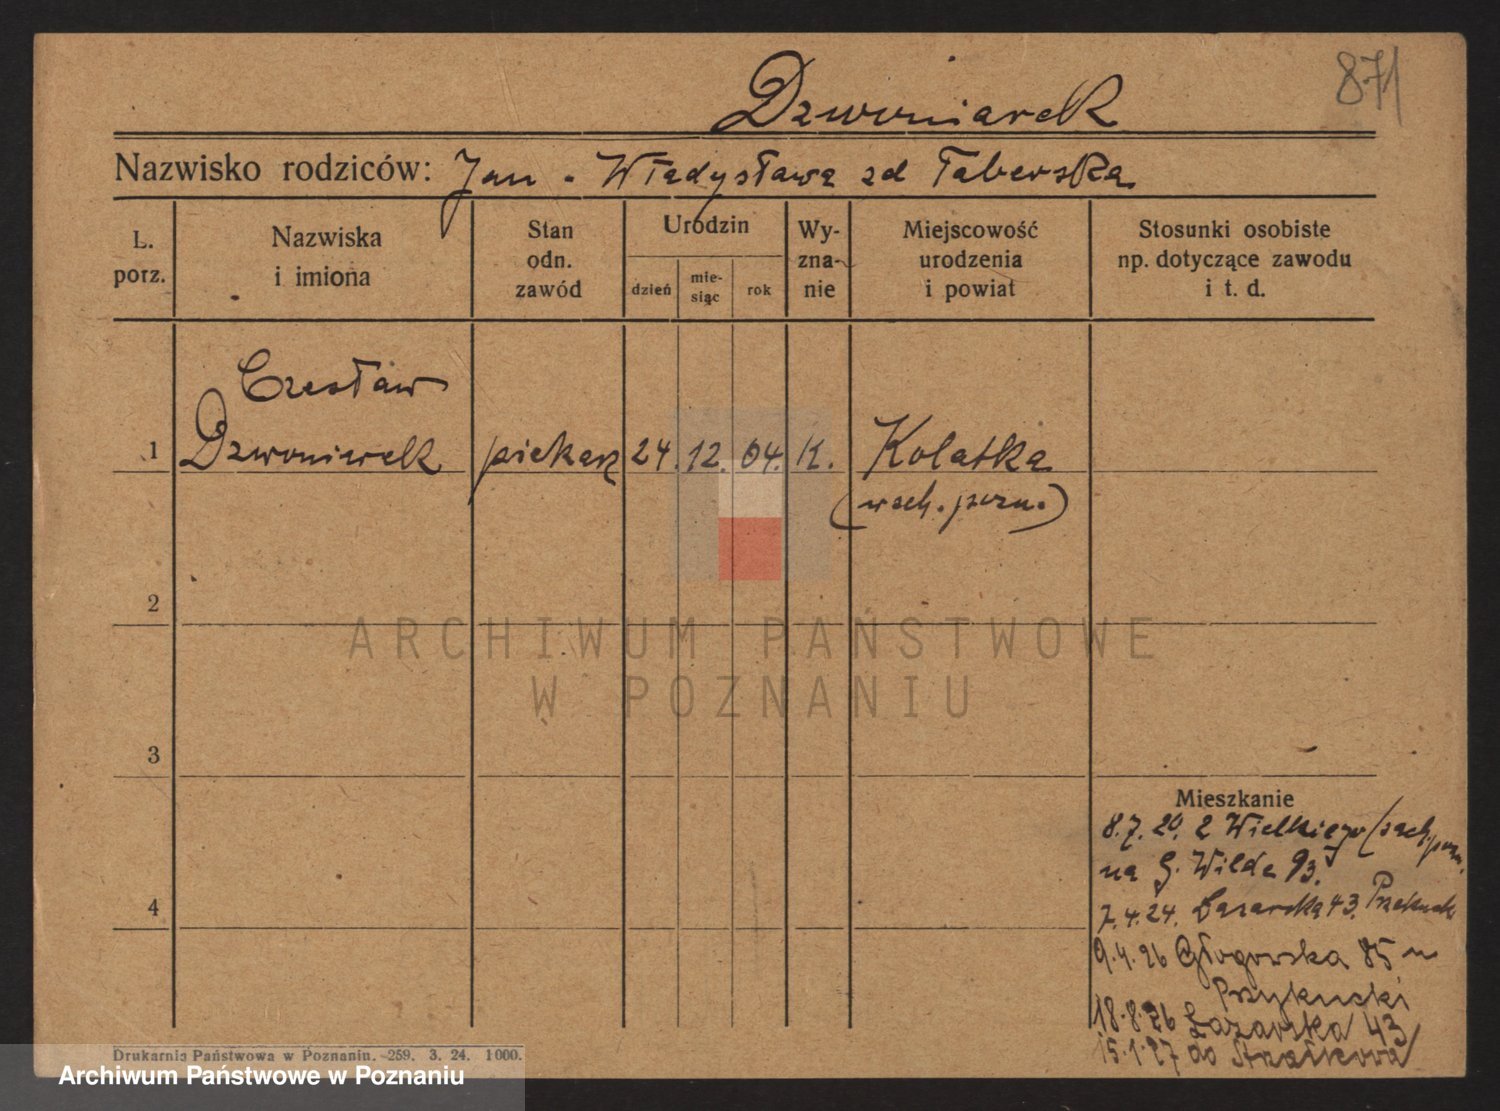 871
Dzwoniarek
Nazwisko rodziców: Jan - Władysława zd Taberska
L. porz.
Nazwiska i imiona
Stan odn. zawód
Urodzin
dzień
mie- siąc
rok
Wy- zna- nie
Miejscowość urodzenia i powiat
Stosunki osobiste np. dotyczące zawodu i t. d.
Czesław
1 Dzwoniarek piekarz 24. 12. 04. K. Kolatka
2
3
4
Mieszkanie
8.7.20. z Wielkiego
na G. Wilda 93.
7.4.24. Łazarska 43.
9.4.26 Głogowska 85 m
Przykucki
18.8.26 Łazarska 43
15.1.27 do
Drukarnia Państwowa w Poznaniu. 259. 3. 24. 1000.
ARCHIWUM PAŃSTWOWE
W POZNANIU
Archiwum Państwowe w Poznaniu